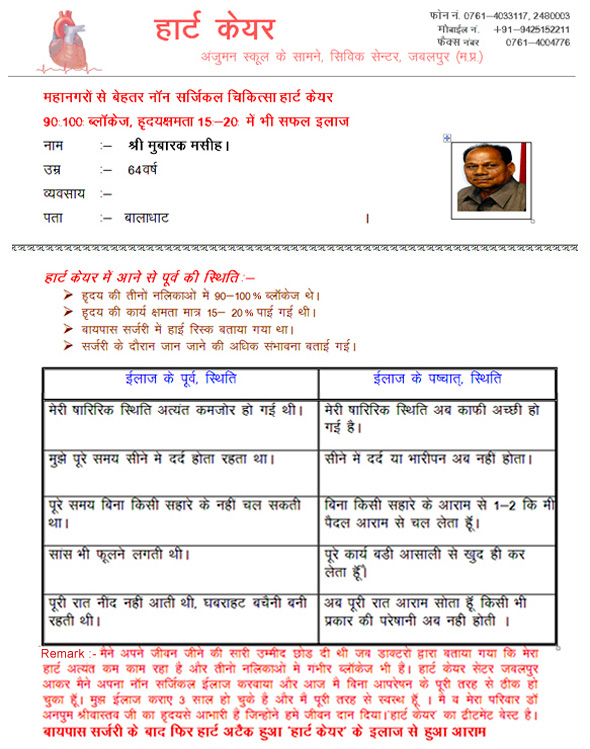 हार्ट केयर
फोन नं. 0761–4033117, 2480003
मोबाईल नं. +91–9425152211
फैक्स नंबर 0761–4004776
अंजुमन स्कूल के सामने, सिविक सेन्टर, जबलपुर (म.प्र.)
महानगरों से बेहतर नॉन सर्जिकल चिकित्सा हार्ट केयर
90:100: ब्लॉकेज, हृदयक्षमता 15–20: में भी सफल इलाज
नाम :– श्री मुबारक मसीह।
उम्र :– 64वर्ष
व्यवसाय :–
पता :– बालाधाट ।
हार्ट केयर में आने से पूर्व की स्थिति:–
हृदय की तीनो नलिकाओ में 90–100% ब्लॉकेज थे।
हृदय की कार्य क्षमता मात्र 15– 20% पाई गई थी।
बायपास सर्जरी में हाई रिस्क बताया गया था।
सर्जरी के दौरान जान जाने की अधिक संभावना बताई गई।
ईलाज के पूर्व, स्थिति
ईलाज के पष्चात्, स्थिति
मेरी षारिरिक स्थिति अत्यंत कमजोर हो गई थी।
मेरी षारिरिक स्थिति अब काफी अच्छी हो
गई है।
मुझे पूरे समय सीने मे दर्द होता रहता था।
सीने में दर्द या भारीपन अब नही होता।
पूरे समय बिना किसी सहारे के नही चल सकती
था।
बिना किसी सहारे के आराम से 1–2 कि मी
पैदल आराम से चल लेता हूँ।
सांस भी फूलने लगती थी।
पूरे कार्य बडी आसाली से खुद ही कर
लेता हूँ।
पूरी रात नीद नही आती थी, घबराहट बचैनी बनी
रहती थी।
अब पूरी रात आराम सोता हूँ किसी भी
प्रकार की परेषानी अब नही होती ।
Remark :- मैने अपने जीवन जीने की सारी उम्मीद छोड दी थी जब डाक्टरो द्वारा बताया गया कि मेरा
हार्ट अत्यत कम काम रहा है और तीनो नलिकाओ मे गंभीर ब्लॉकेज भी है। हार्ट केयर सेटर जबलपुर
आकर मैने अपना नॉन सर्जिकल ईलाज करवाया और आज मै बिना आपरेषन के पूरी तरह से ठीक हो
चुका हूँ। मुझ ईलाज कराए 3 साल हो चुके है और मै पूरी तरह से स्वस्थ हूँ । मै व मेरा परिवार डॉ
अनपुम श्रीवास्तव जी का हृदयसे आभारी है जिन्होने हमे जीवन दान दिया। हार्ट केयर' का ट्रीटमेंट बेस्ट है।
बायपास सर्जरी के बाद फिर हार्ट अटैक हुआ 'हार्ट केयर' के इलाज से हुआ आराम